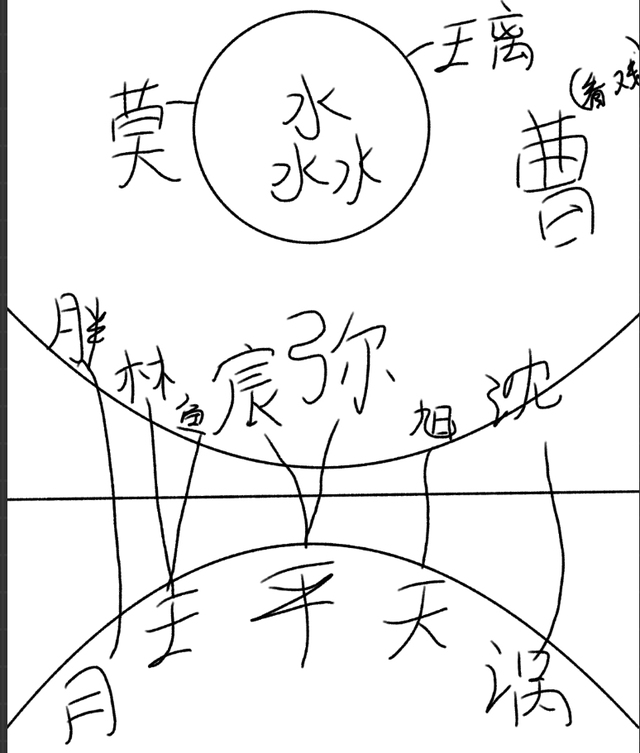 王离
(看戏)
莫
水
水水
曹
胖
林
鱼
宸
弥
旭
沈
王
平
天
月
涡